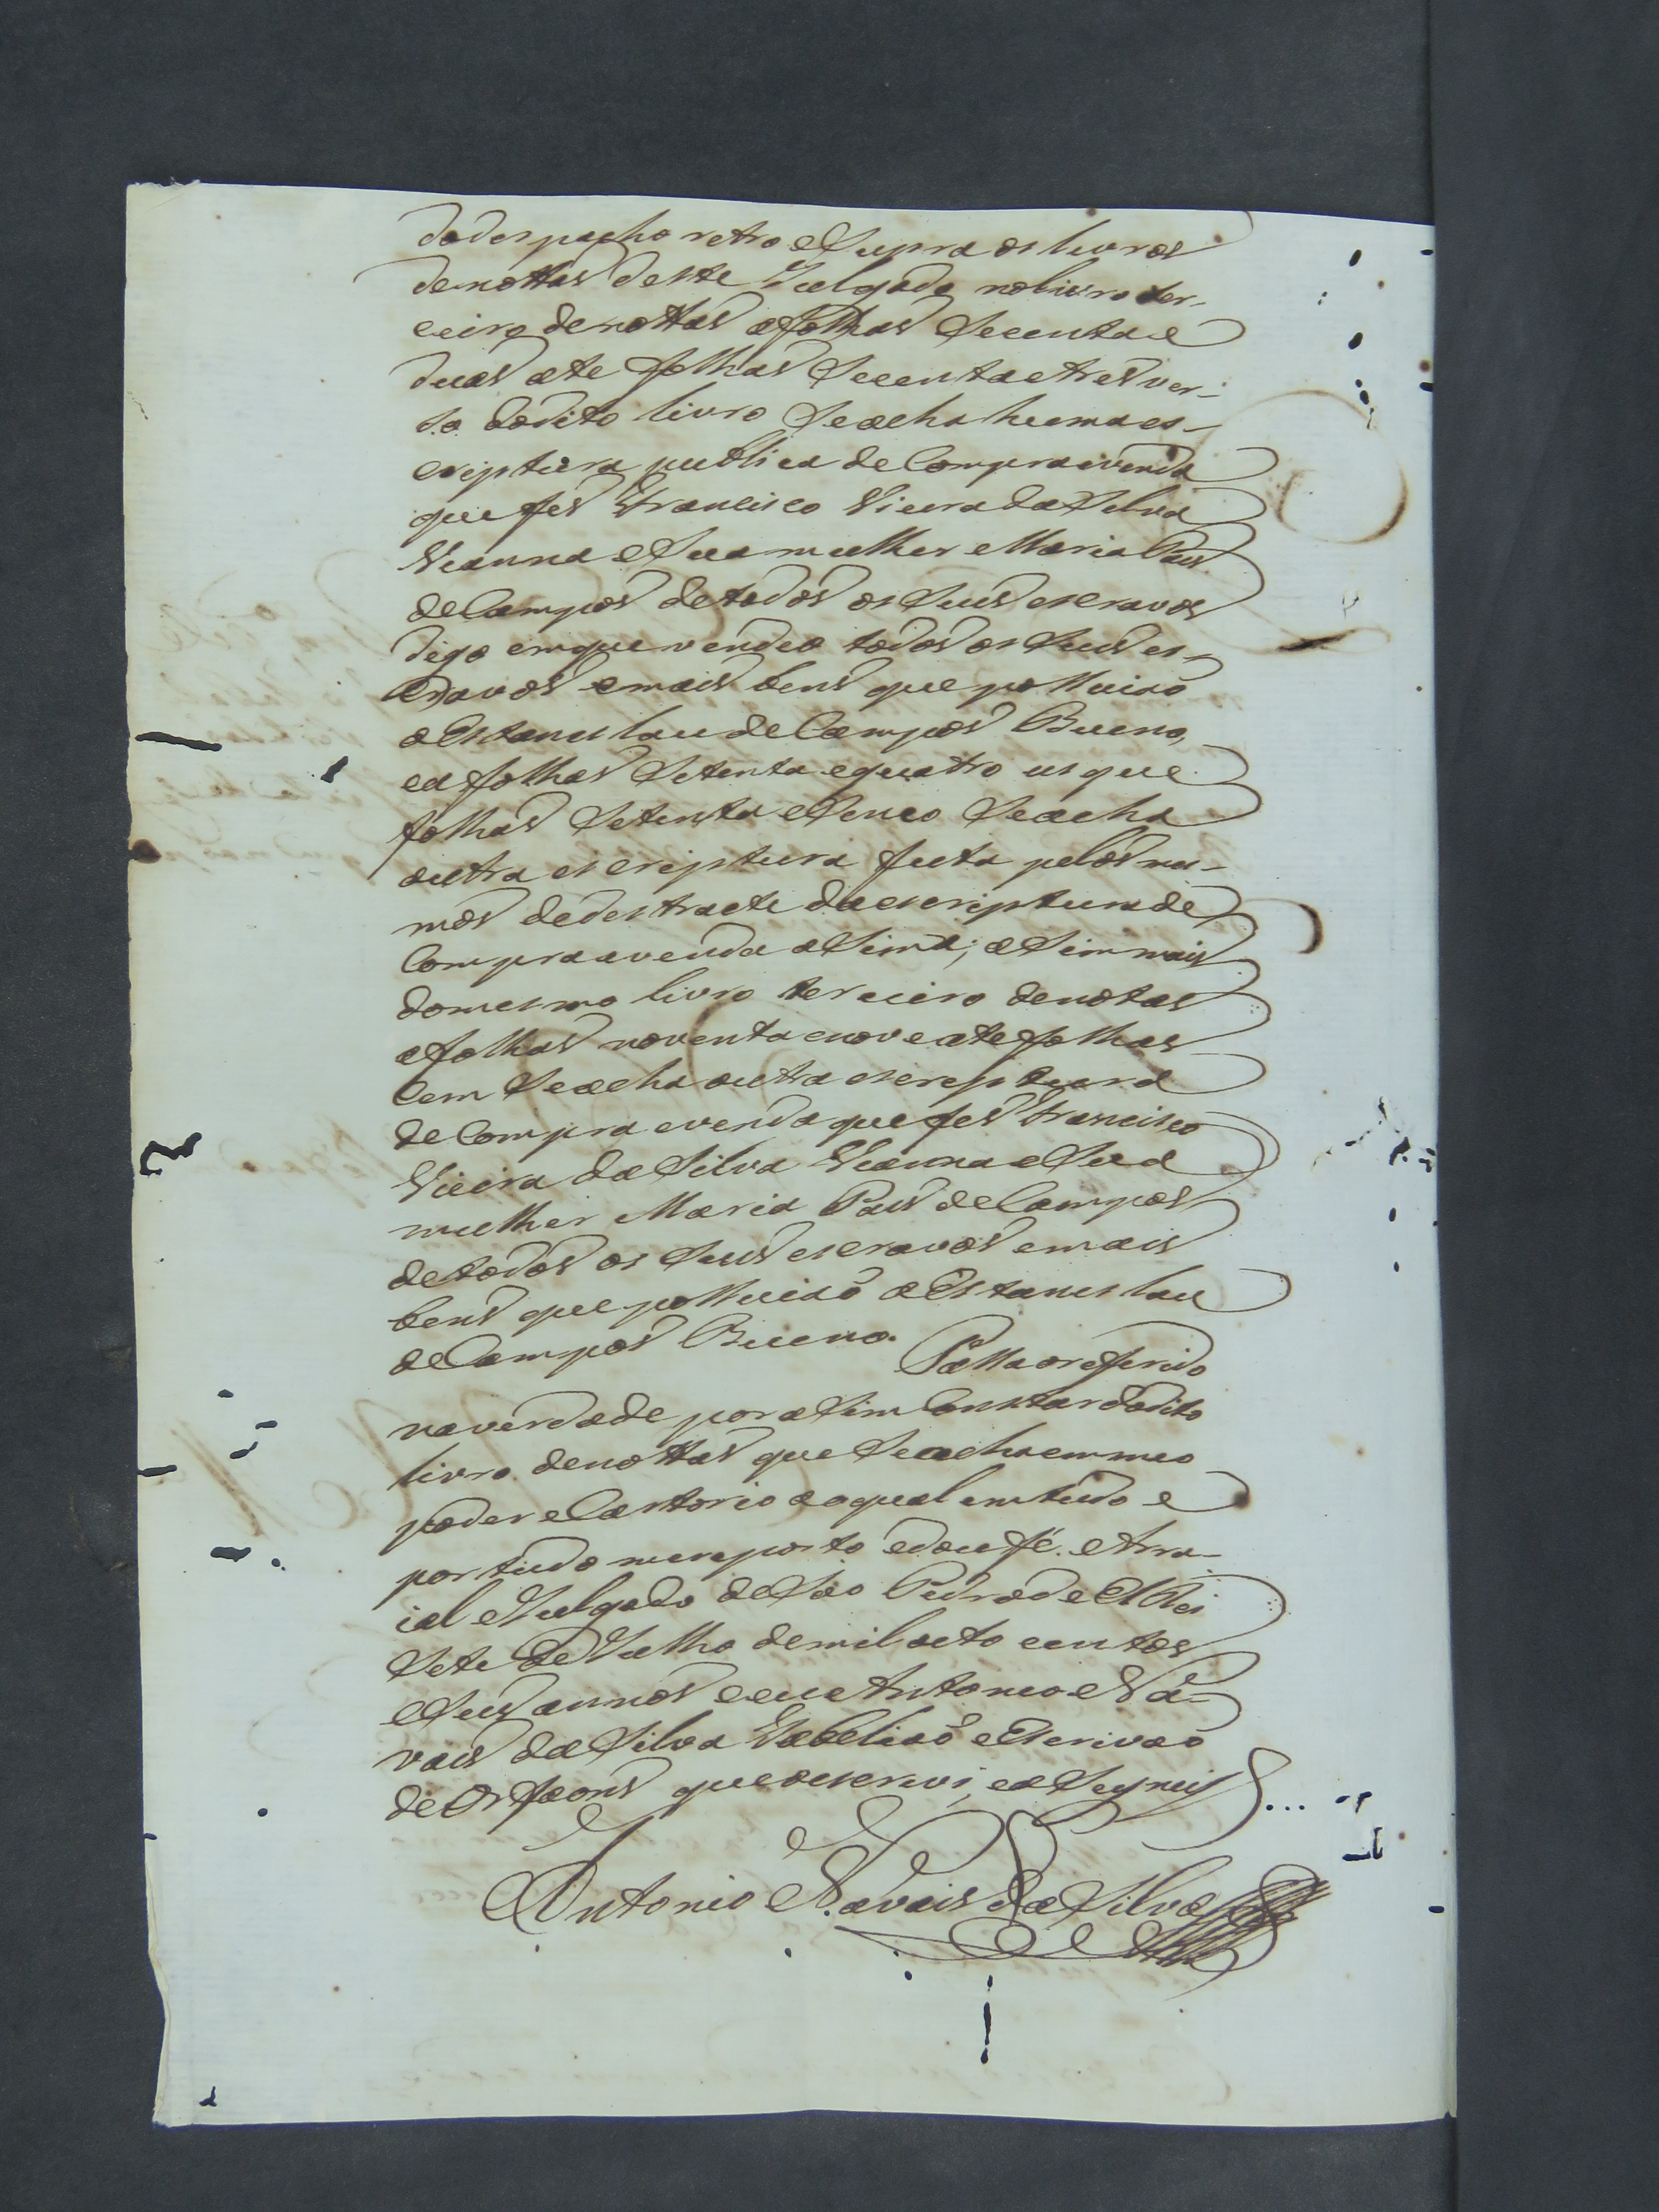 dodespacho retro eSupra os livros
denottas deste Julgado nolivro ter-
ceiro denottas afolhas Secenta e
duas ate folhas Secenta etres ver-
so dodito livro Seacha huma es-
criptura publica de Compra evenda
que fes Francisco Vieira daSilva
Vianna eSua mulher Maria Pais
deCampos detodos os Seus escravos
digo emque vendeo todos os Seus es-
cravos emais bens que pessuiaõ
aEstanislau deCampos Bueno,
ea folhas Setenta equatro usque
folhas Setenta eSinco Seacha
outra escriptura feita pelos mes-
mos dedestracte daescriptura de
Compra avenda aSima; aSim mais
domesmo livro terceiro denotas
afolhas noventa enove ate folhas
Cem Seacha outra escriptura
deCompra evenda que fes Francisco
Vieira daSilva Vianna eSua
mulher Maria Pais deCampos
detodos os Seus escravos emais
bens que pessuiaõ aEstanislau
deCampos Bueno. Passa oreferido
naverdade por aSim Constar dodito
livro denottas que Seacha em meo
poder eCartorio aoqual em tudo e
por tudo mereporto edou fé. Arra-
ial eJulgado deSão Pedro de El Rei
Sete deJulho demil oito centos
eSeis annos eeu Antonio Na-
vais daSilva Tabeliaõ eEscrivaõ
deOrfaons queoescrevi, eaSignei
Antonio Navais daSilva